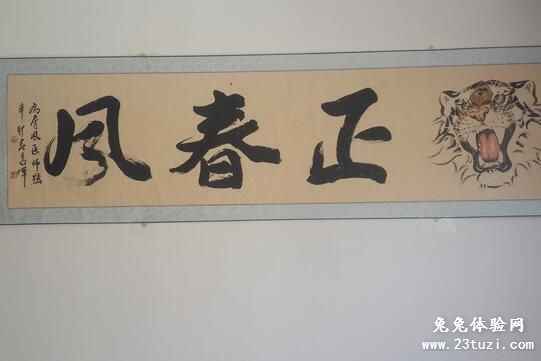 正春风
风医师题
辛卯
兔兔体验网
www.23tuzi.com